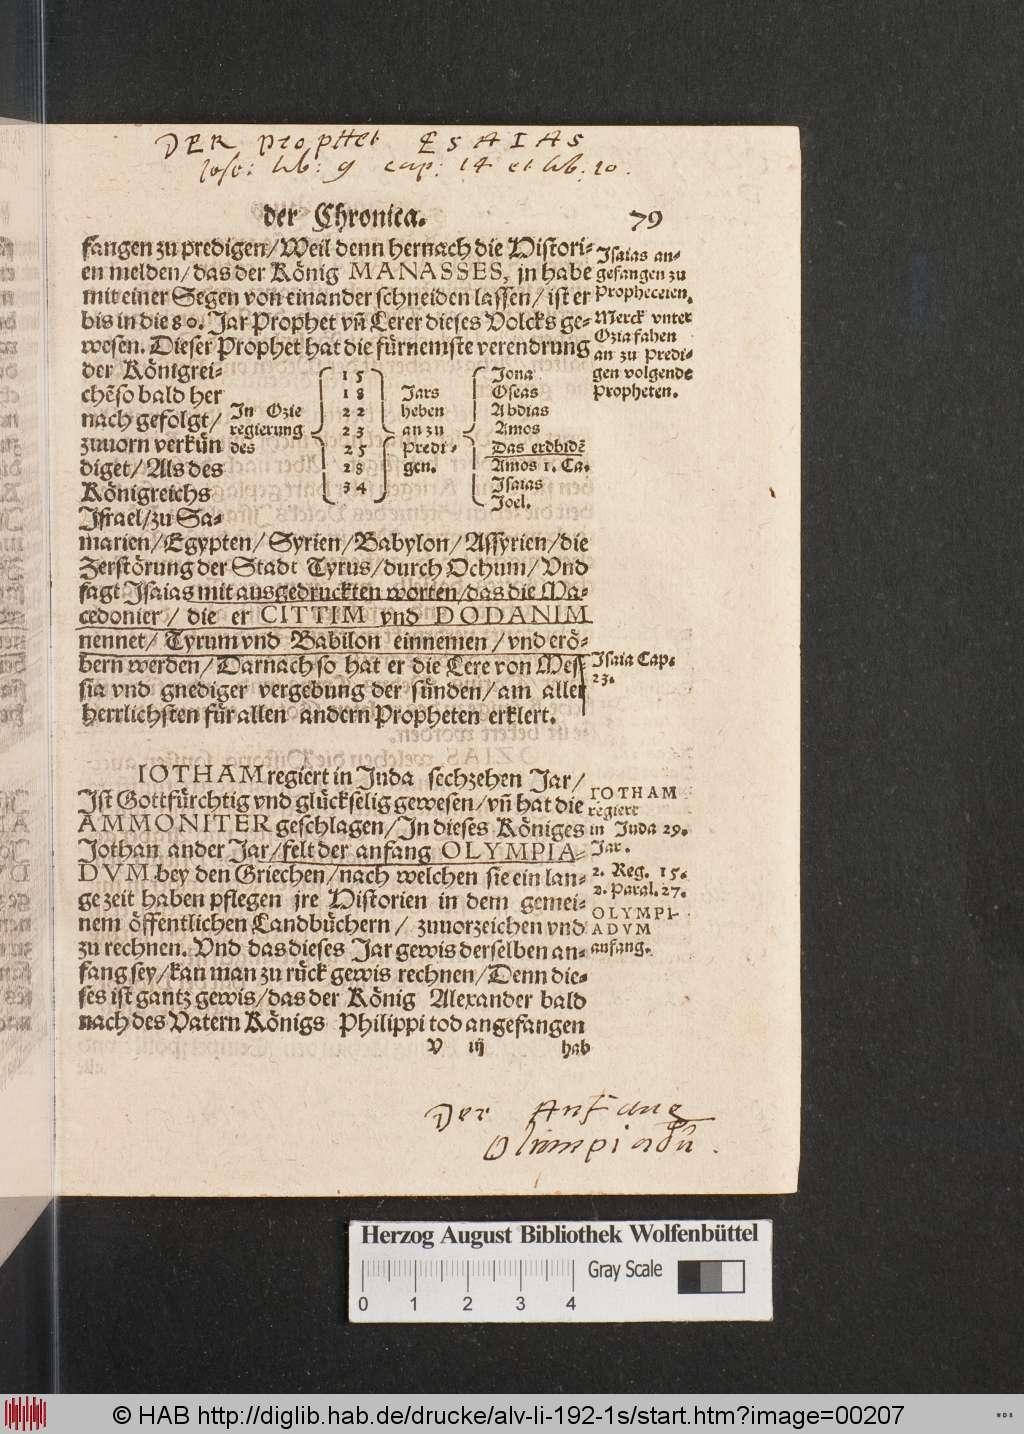 DER Prophet ESAIAS
Jose: lib: 9 cap: 14 et lib. 10.
der Chronica. 79
fangen zu predigen/Weil denn hernach die Histori-
en melden/das der König MANASSES, jn habe
mit einer Segen von einander schneiden lassen/ist er
bis in die 80. Jar Prophet vñ Lerer dieses Volcks ge-
wesen. Dieser Prophet hat die fürnemste verendrung
Isaias an-
gefangen zu
Propheceien.
Merck vnter
Ozia fahen
an zu Predi-
gen volgende
Propheten.
der Königrei-
chẽso bald her
nach gefolgt/
zuuorn verkün
diget/Als des
Königreichs
Israel/zu Sa-
In Ozie
regierung
des
15
18
22
23
25
28
34
Jars
heben
an zu
Predi-
gen.
Jona
Oseas
Abdias
Amos
Das erdbidẽ
Amos 1. Ca.
Isaias
Joel.
marien/Egypten/Syrien/Babylon/Assyrien/die
Zerstörung der Stadt Tyrus/durch Ochum/Vnd
sagt Isaias mit ausgedruckten worten/das die Ma-
cedonier/die er CITTIM vnd DODANIM
nennet/Tyrum vnd Babilon einnemen/vnd erö-
bern werden/Darnach so hat er die Lere von Mess
sia vnd gnediger vergebung der sünden/am aller
herrlichsten für allen andern Propheten erklert.
Isaia Cap.
23.
IOTHAM regiert in Juda sechzehen Jar/
Ist Gottfürchtig vnd glückselig gewesen/vñ hat die
AMMONITER geschlagen/In dieses Königes
Jothan ander Jar/felt der anfang OLYMPIA-
DVM bey den Griechen/nach welchen sie ein lan-
ge zeit haben pflegen jre Historien in dem gemei-
nem öffentlichen Landbüchern/zuuorzeichen vnd
zu rechnen. Vnd das dieses Jar gewis derselben an-
fang sey/kan man zu rück gewis rechnen/Denn die-
ses ist gantz gewis/das der König Alexander bald
nach des Vatern Königs Philippi tod angefangen
IOTHAM
regiert
in Juda 29.
Jar.
2. Reg. 15.
2. Paral. 27.
OLYMPI-
ADVM
anfang.
V iij hab
Der Anfang
Olimpiadũ.
Herzog August Bibliothek Wolfenbüttel
Gray Scale
0 1 2 3 4
© HAB http://diglib.hab.de/drucke/alv-li-192-1s/start.htm?image=00207
WDB